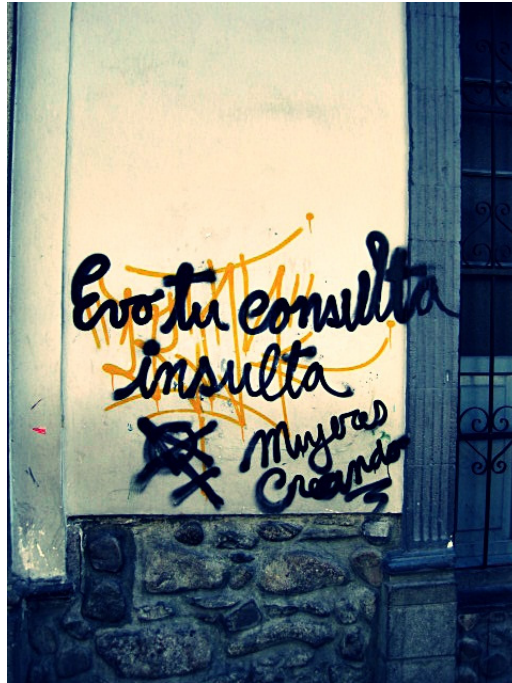 Evo tu consulta
insulta
Mujeres
Creando